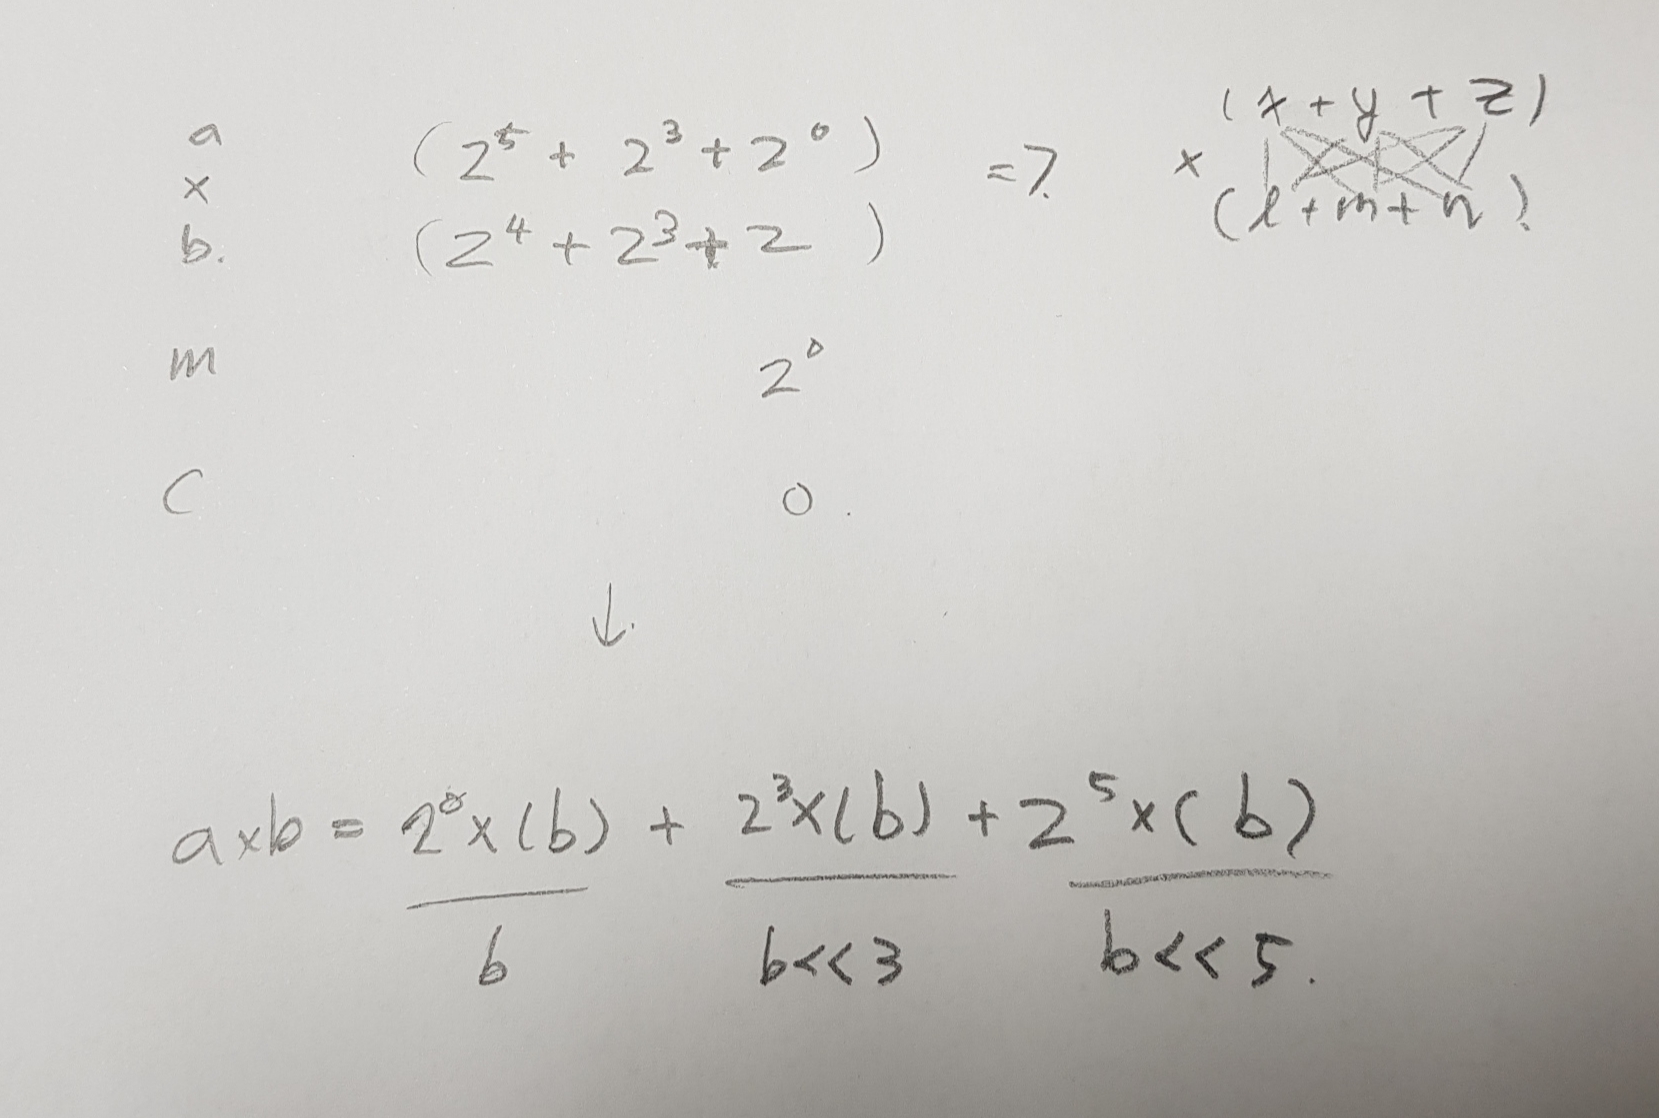 a (2⁵ + 2³ + 2⁰) =? (x + y + z)
x x
b. (2⁴ + 2³ + 2 ) (l + m + n)
m 2⁰
C 0.
↓.
axb = 2⁰x(b) + 2³x(b) + 2⁵x(b)
b b<<3 b<<5.